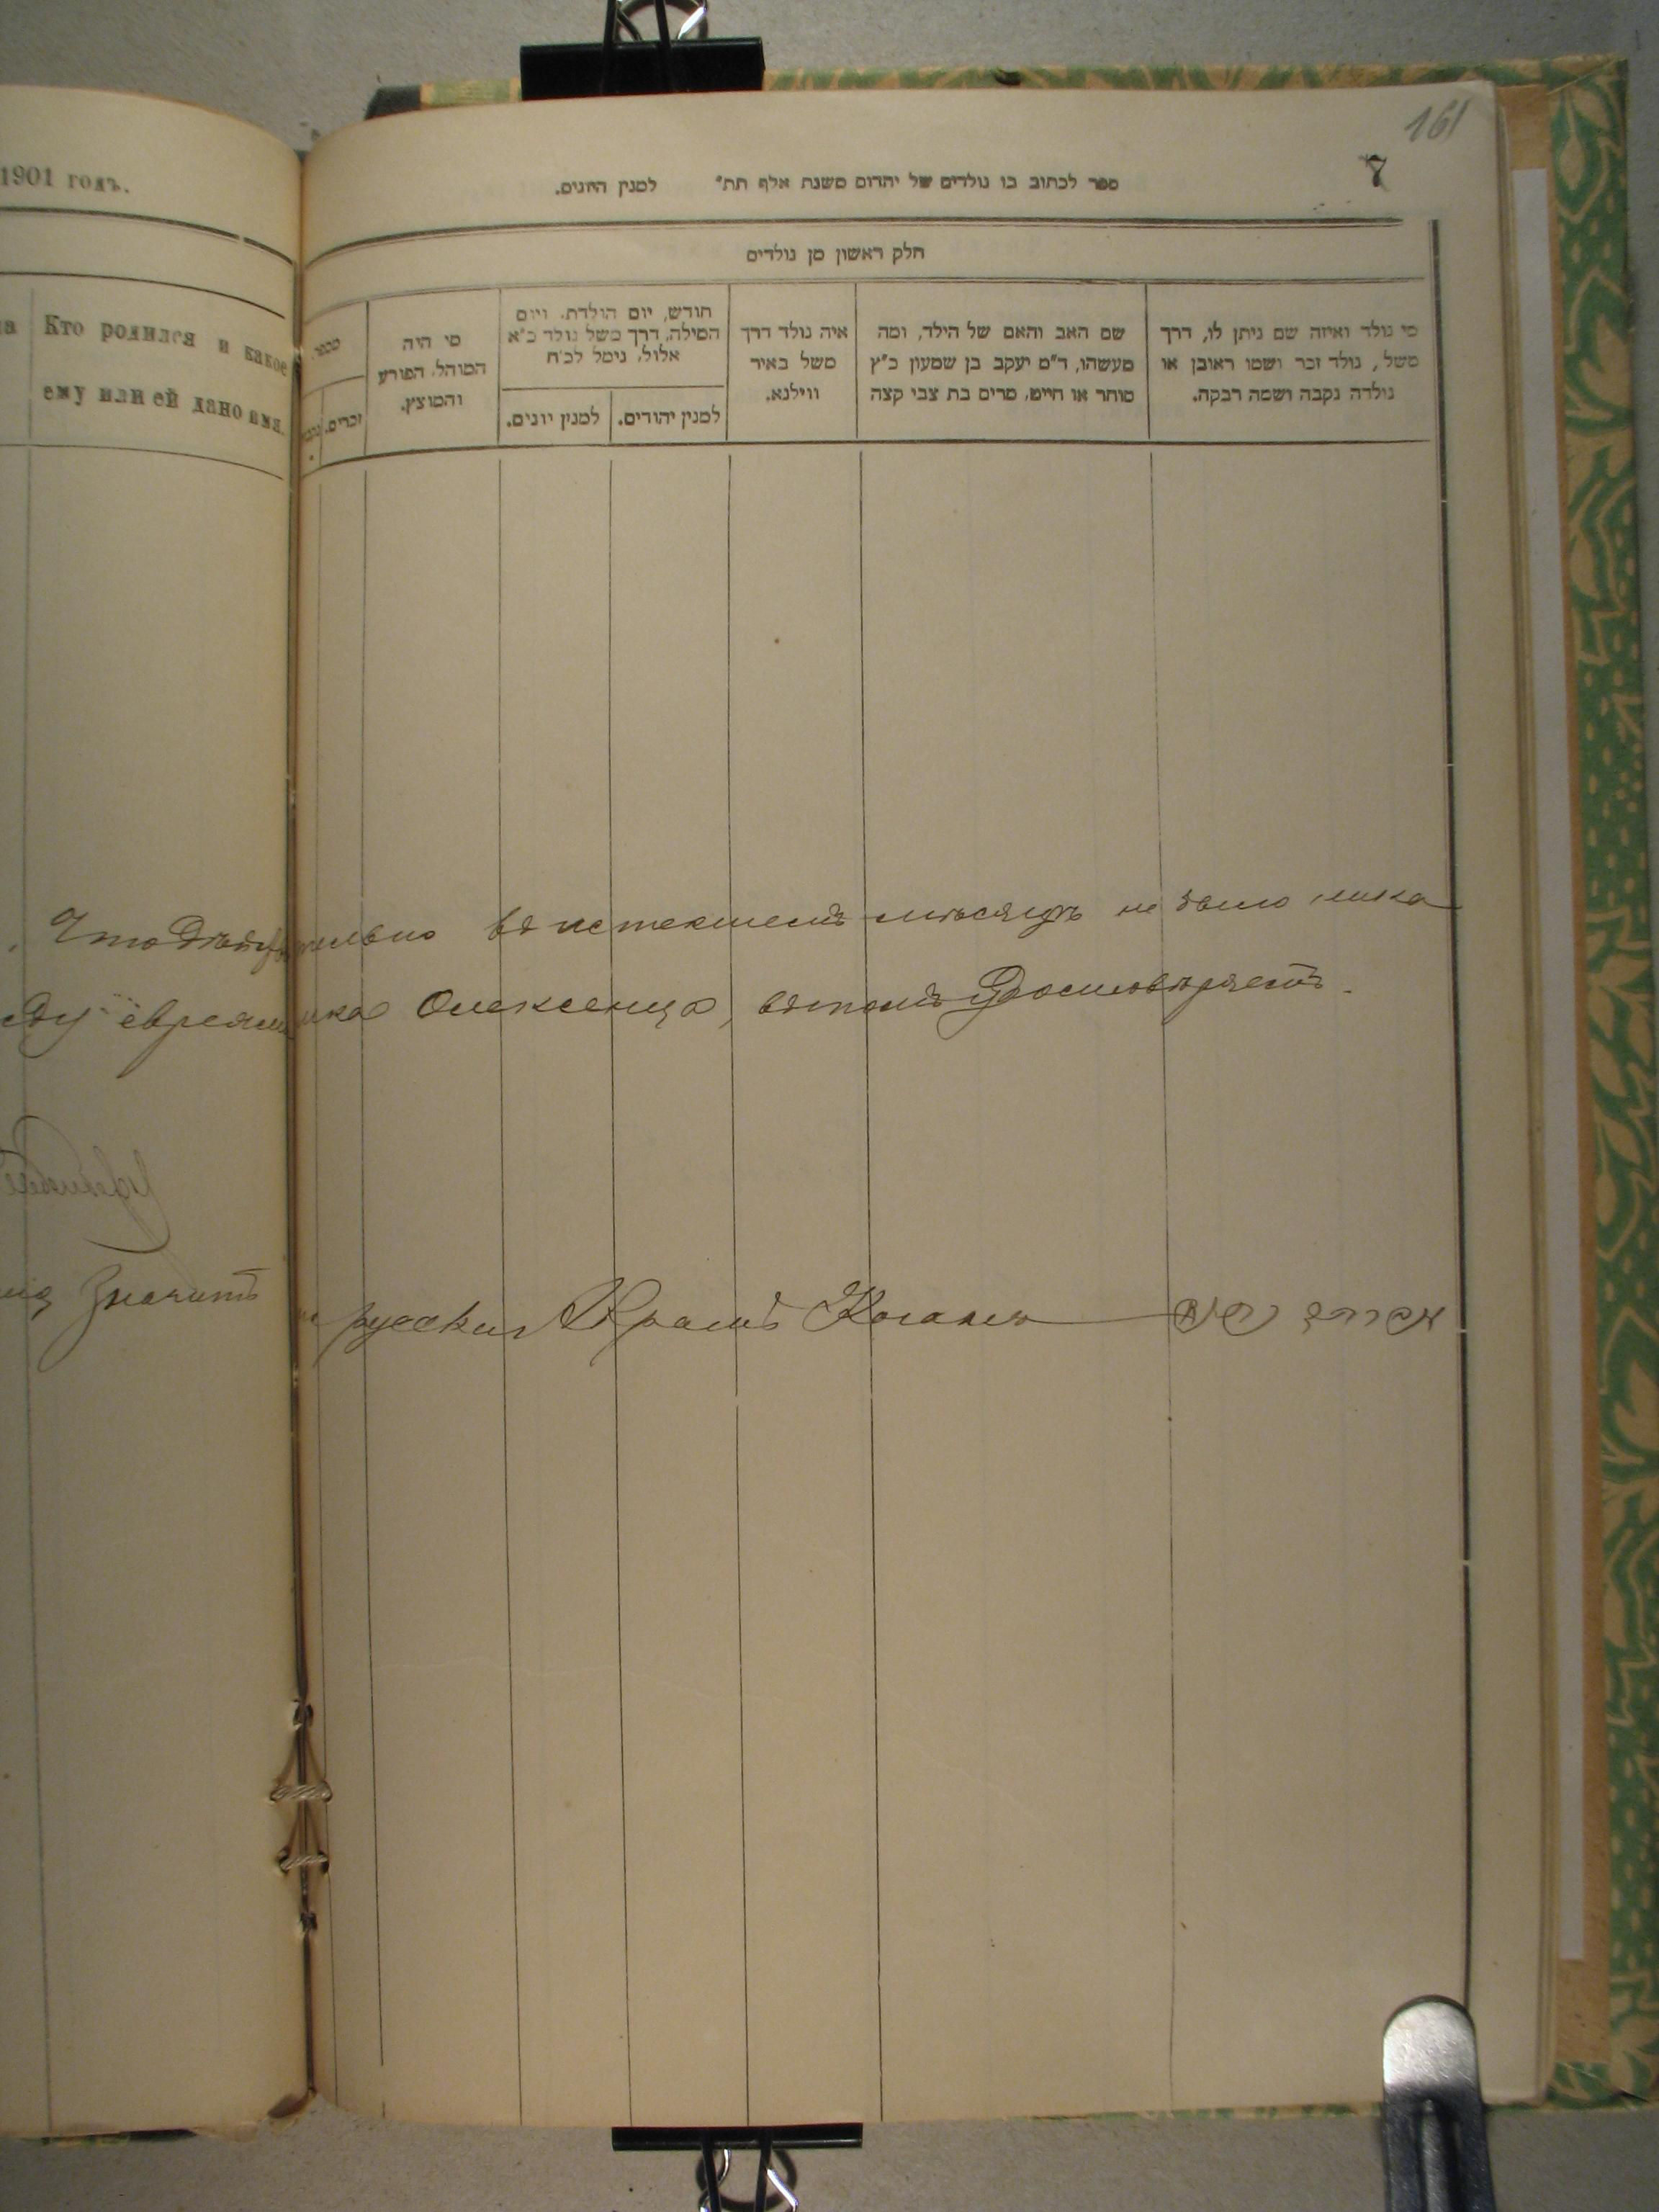 161
7
1901 годъ.
ספר לכתוב בו נולדים של יהדום משנת אלף תת״ למנין היונים.
חלק ראשון מן נולדים
Кто родился и какое
ему или ей дано имя.
מספר
זכרים.
מי היה
המוהל, הפורע
והמוצץ.
חודש, יום הולדת, ויום
המילה, דרך משל נולד כ״א
אלול, נימל לכ״ח
למנין יונים.
למנין יהודים.
איה נולד דרך
משל באיר
ווילנא.
שם האב והאם של הילד, ומה
מעשהו, ד״מ יעקב בן שמעון כ״ץ
סוחר או חייט, מרים בת צבי קצה
מי נולד ואיזה שם ניתן לו, דרך
משל, נולד זכר ושמו ראובן או
נולדה נקבה ושמה רבקה.
Что действительно въ истекшемъ месяце не было ника
ду евреями Олексенца, въ томъ удостоверяетъ.
Значитъ на русский Абрамъ Коганъ